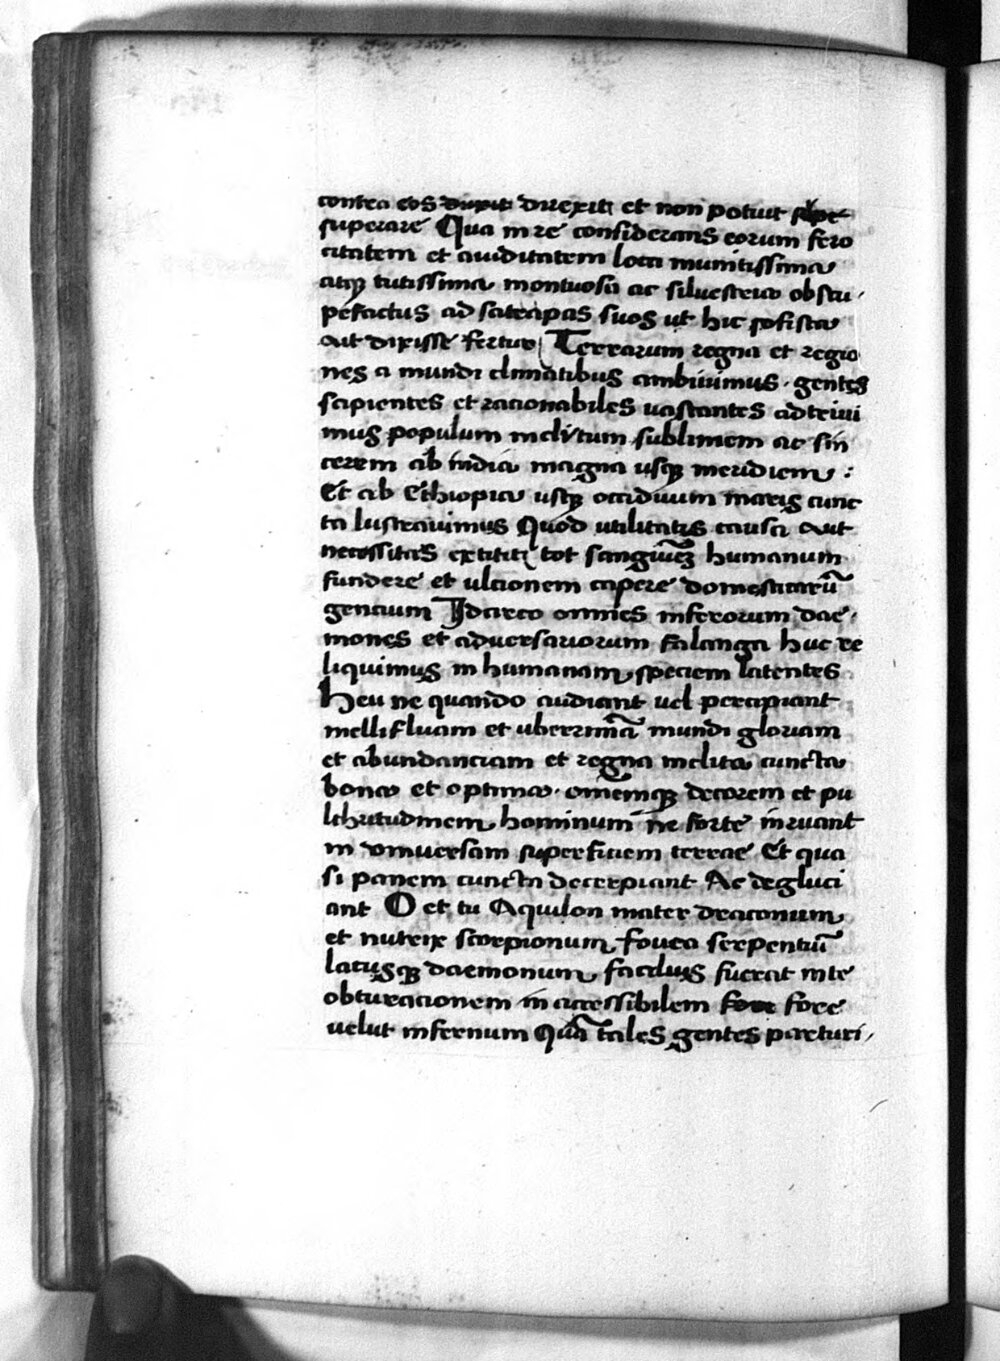 contra eos duxit direxit et non potuit supe
superare Qua in re considerans eorum fero
citatem et auiditatem loca munitissima
atqꝫ tutissima montuosa ac siluestria obstu
pefactus ad satrapas suos ut hic sofista
ait dixisse fertur Terrarum regna et regio
nes a mundi climatibus ambiuimus · gentes
sapientes et racionabiles uastantes adtriui
mus populum inclytum sublimem ac sin
cerem ab india magna usqꝫ meridiem :
Et ab Ethiopia usqꝫ occiduum maris cunc
ta lustrauimus Quod utilitatis causa aut
necessitas extitit tot humanum
fundere et ulcionem capere domesticarū
gencium Idcirco omnes inferorum dae
mones et aduersariorum falanga huc re
liquimus in humanam speciem latentes
Heu ne quando audiant uel percipiant
mellifluam et uberrimā mundi gloriam
et abundanciam et regna inclita cuncta
bona et optima · omēmqꝫ decorem et pu
lchritudinem hominum ne forte inruant
in vniuersam superficiem terrae Et qua
si panem cuncta decerpiant Ac degluci
ant O et tu Aquilon mater draconum
et nutrix scorpionum fouea serpentiū
lacusqꝫ daemonum facilius fuerat in te
obturacionem in accessibilem fore fore
uelut infernum Quā tales gentes parturi